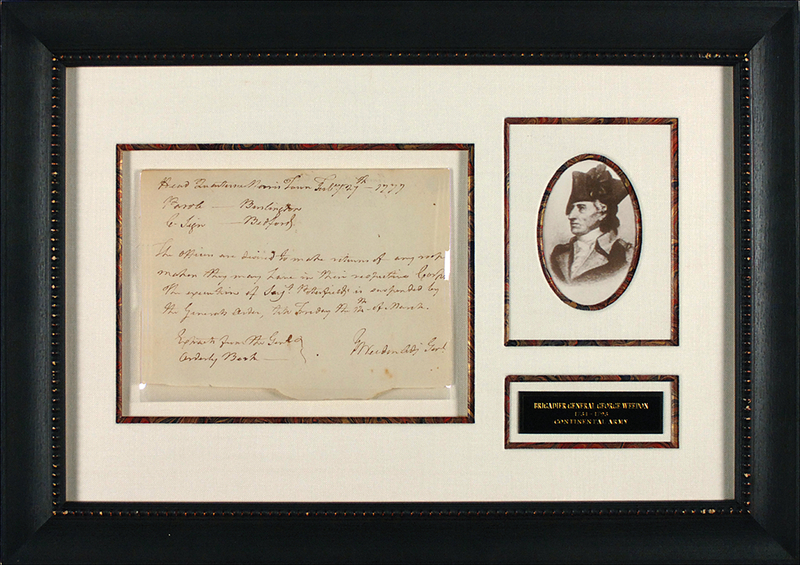 Head Quarters Morris Town Feby 27th - 1777
Parole — Burlington
C. Sign — Bedford
The officers are desired to make returns of any
makers they may have in their respective Corps
The execution of Serjt. is suspended by
the Generals order, till Tuesday the of March.
Extract from the Genl
Orderly Book —
GWeedon Adj Genl
BRIGADIER GENERAL GEORGE WEEDON
CONTINENTAL ARMY